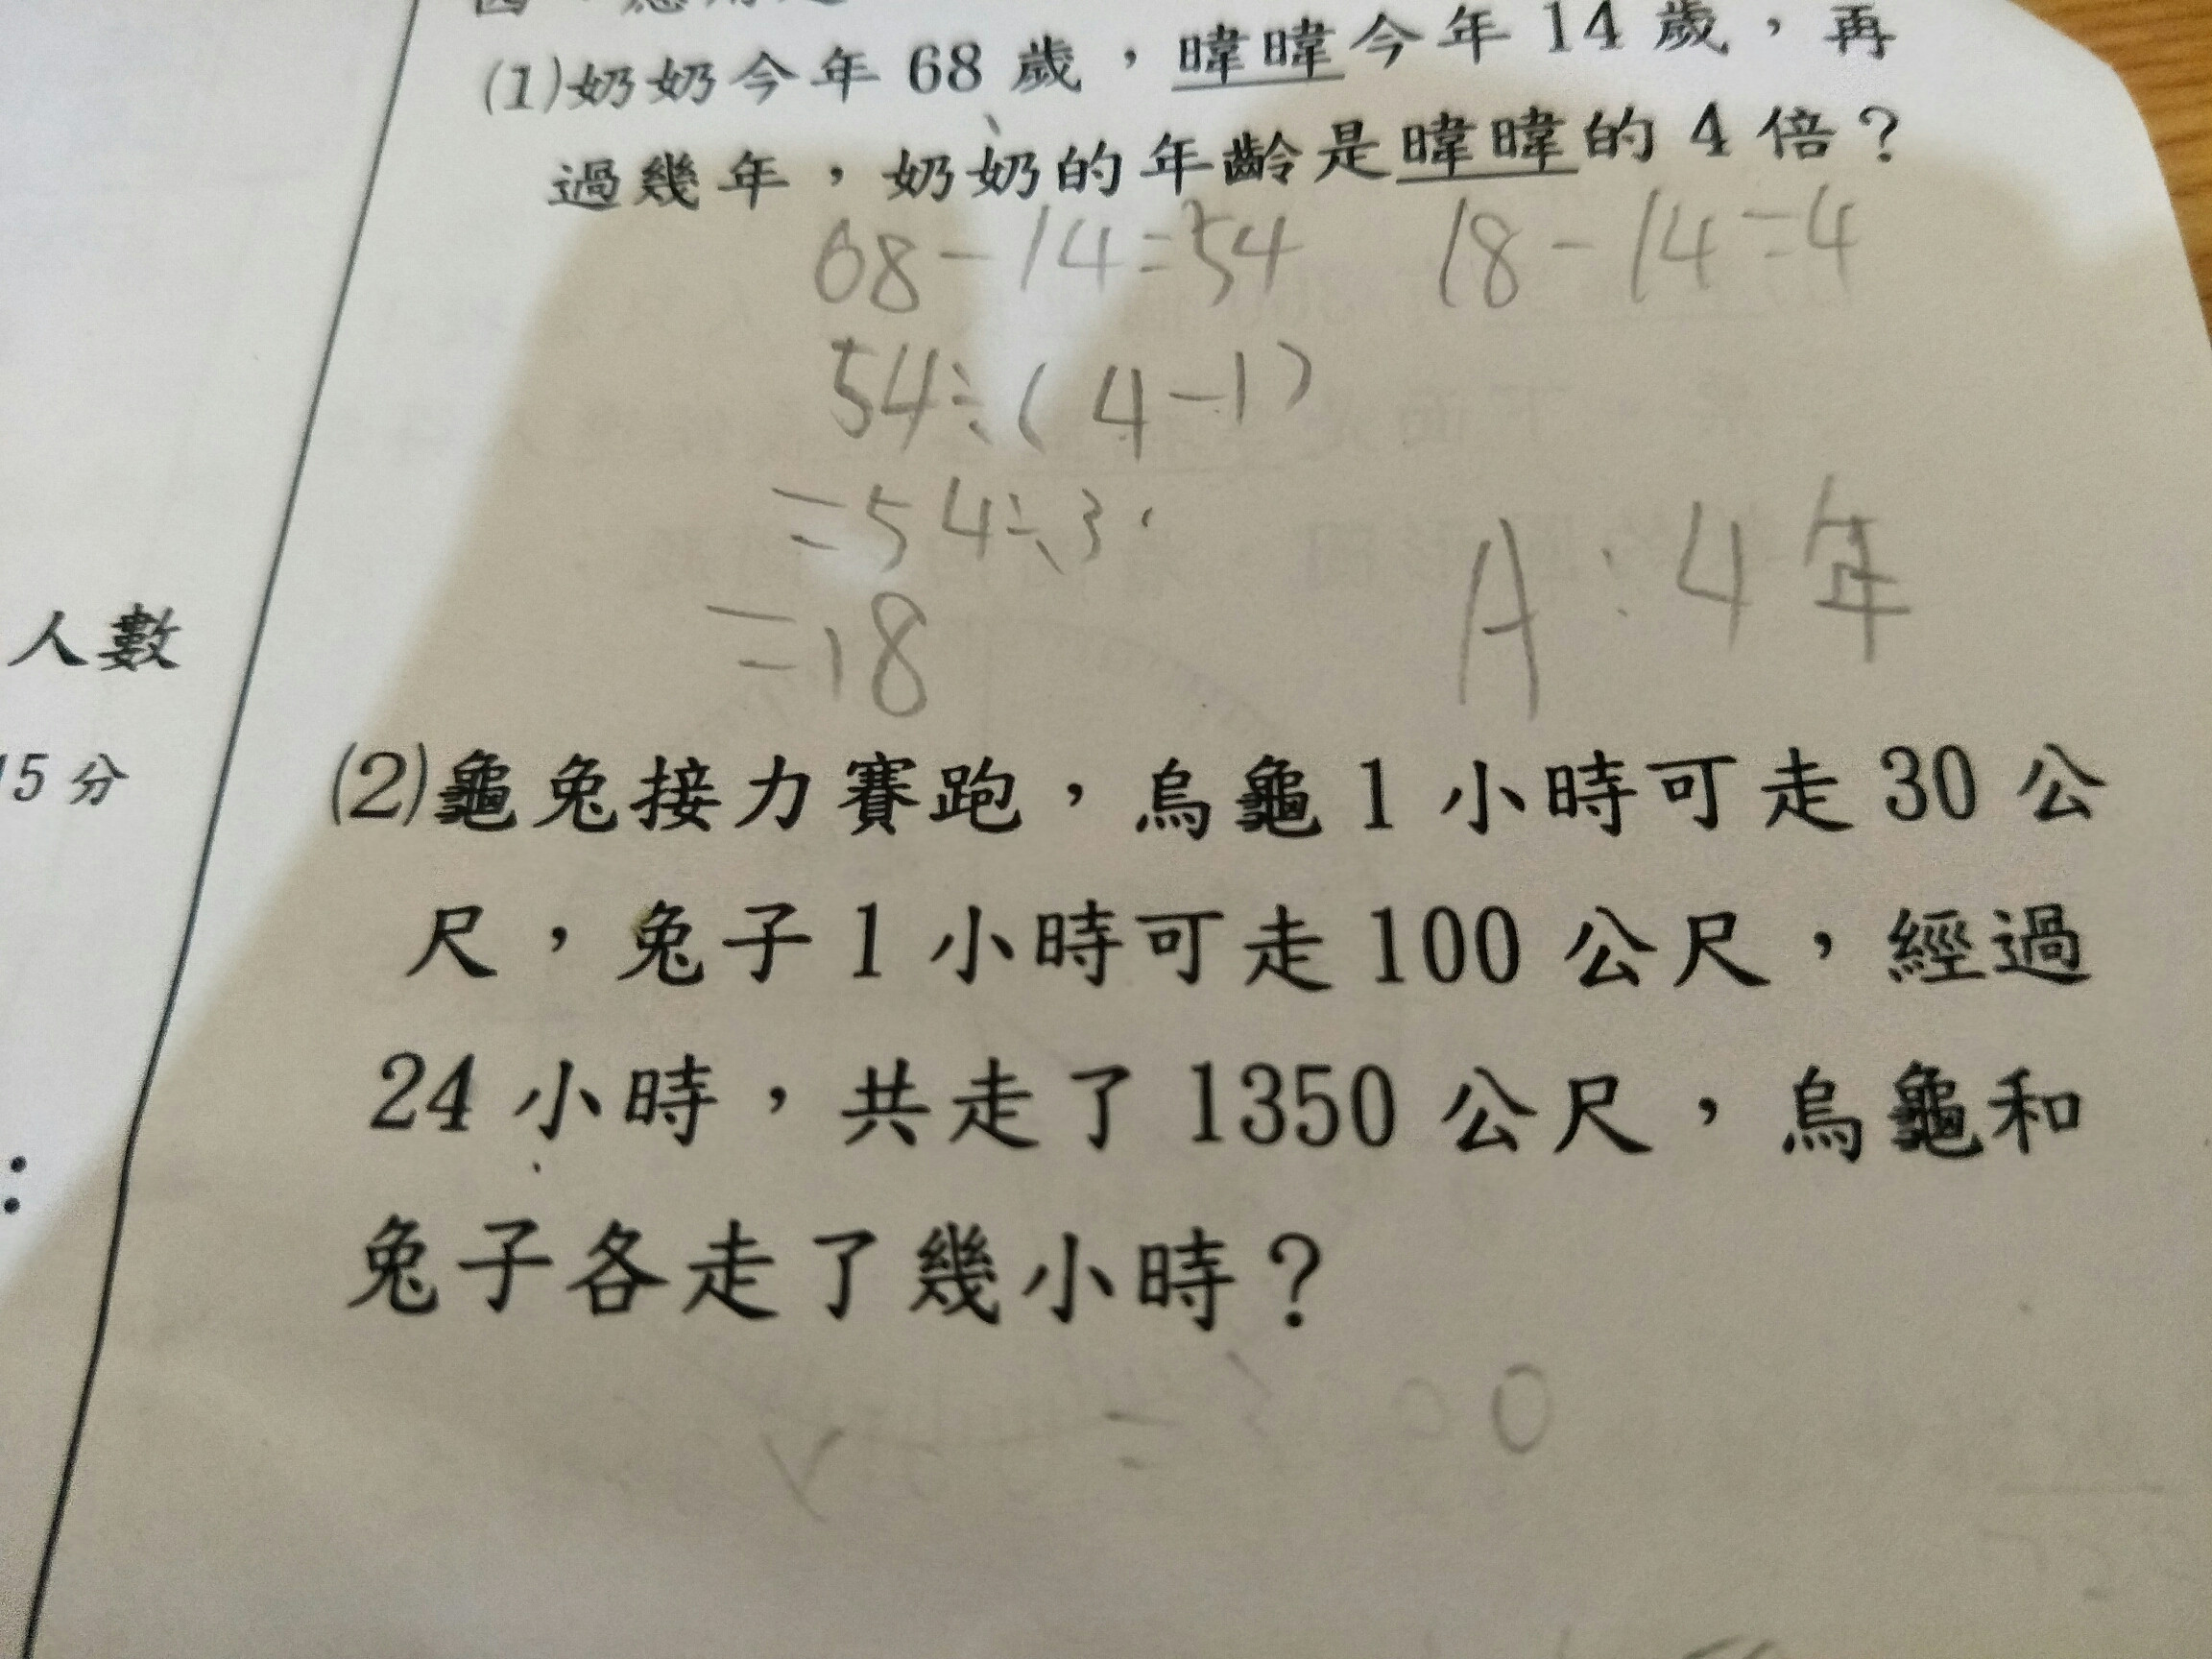 (1)奶奶今年 68 歲，暐暐今年 14 歲，再
過幾年，奶奶的年齡是暐暐的 4 倍？
68-14=54 18-14=4
54÷(4-1)
=54÷3
=18
A:4年
人數
15分
(2)龜兔接力賽跑，烏龜 1 小時可走 30 公
尺，兔子 1 小時可走 100 公尺，經過
24 小時，共走了 1350 公尺，烏龜和
兔子各走了幾小時？
：